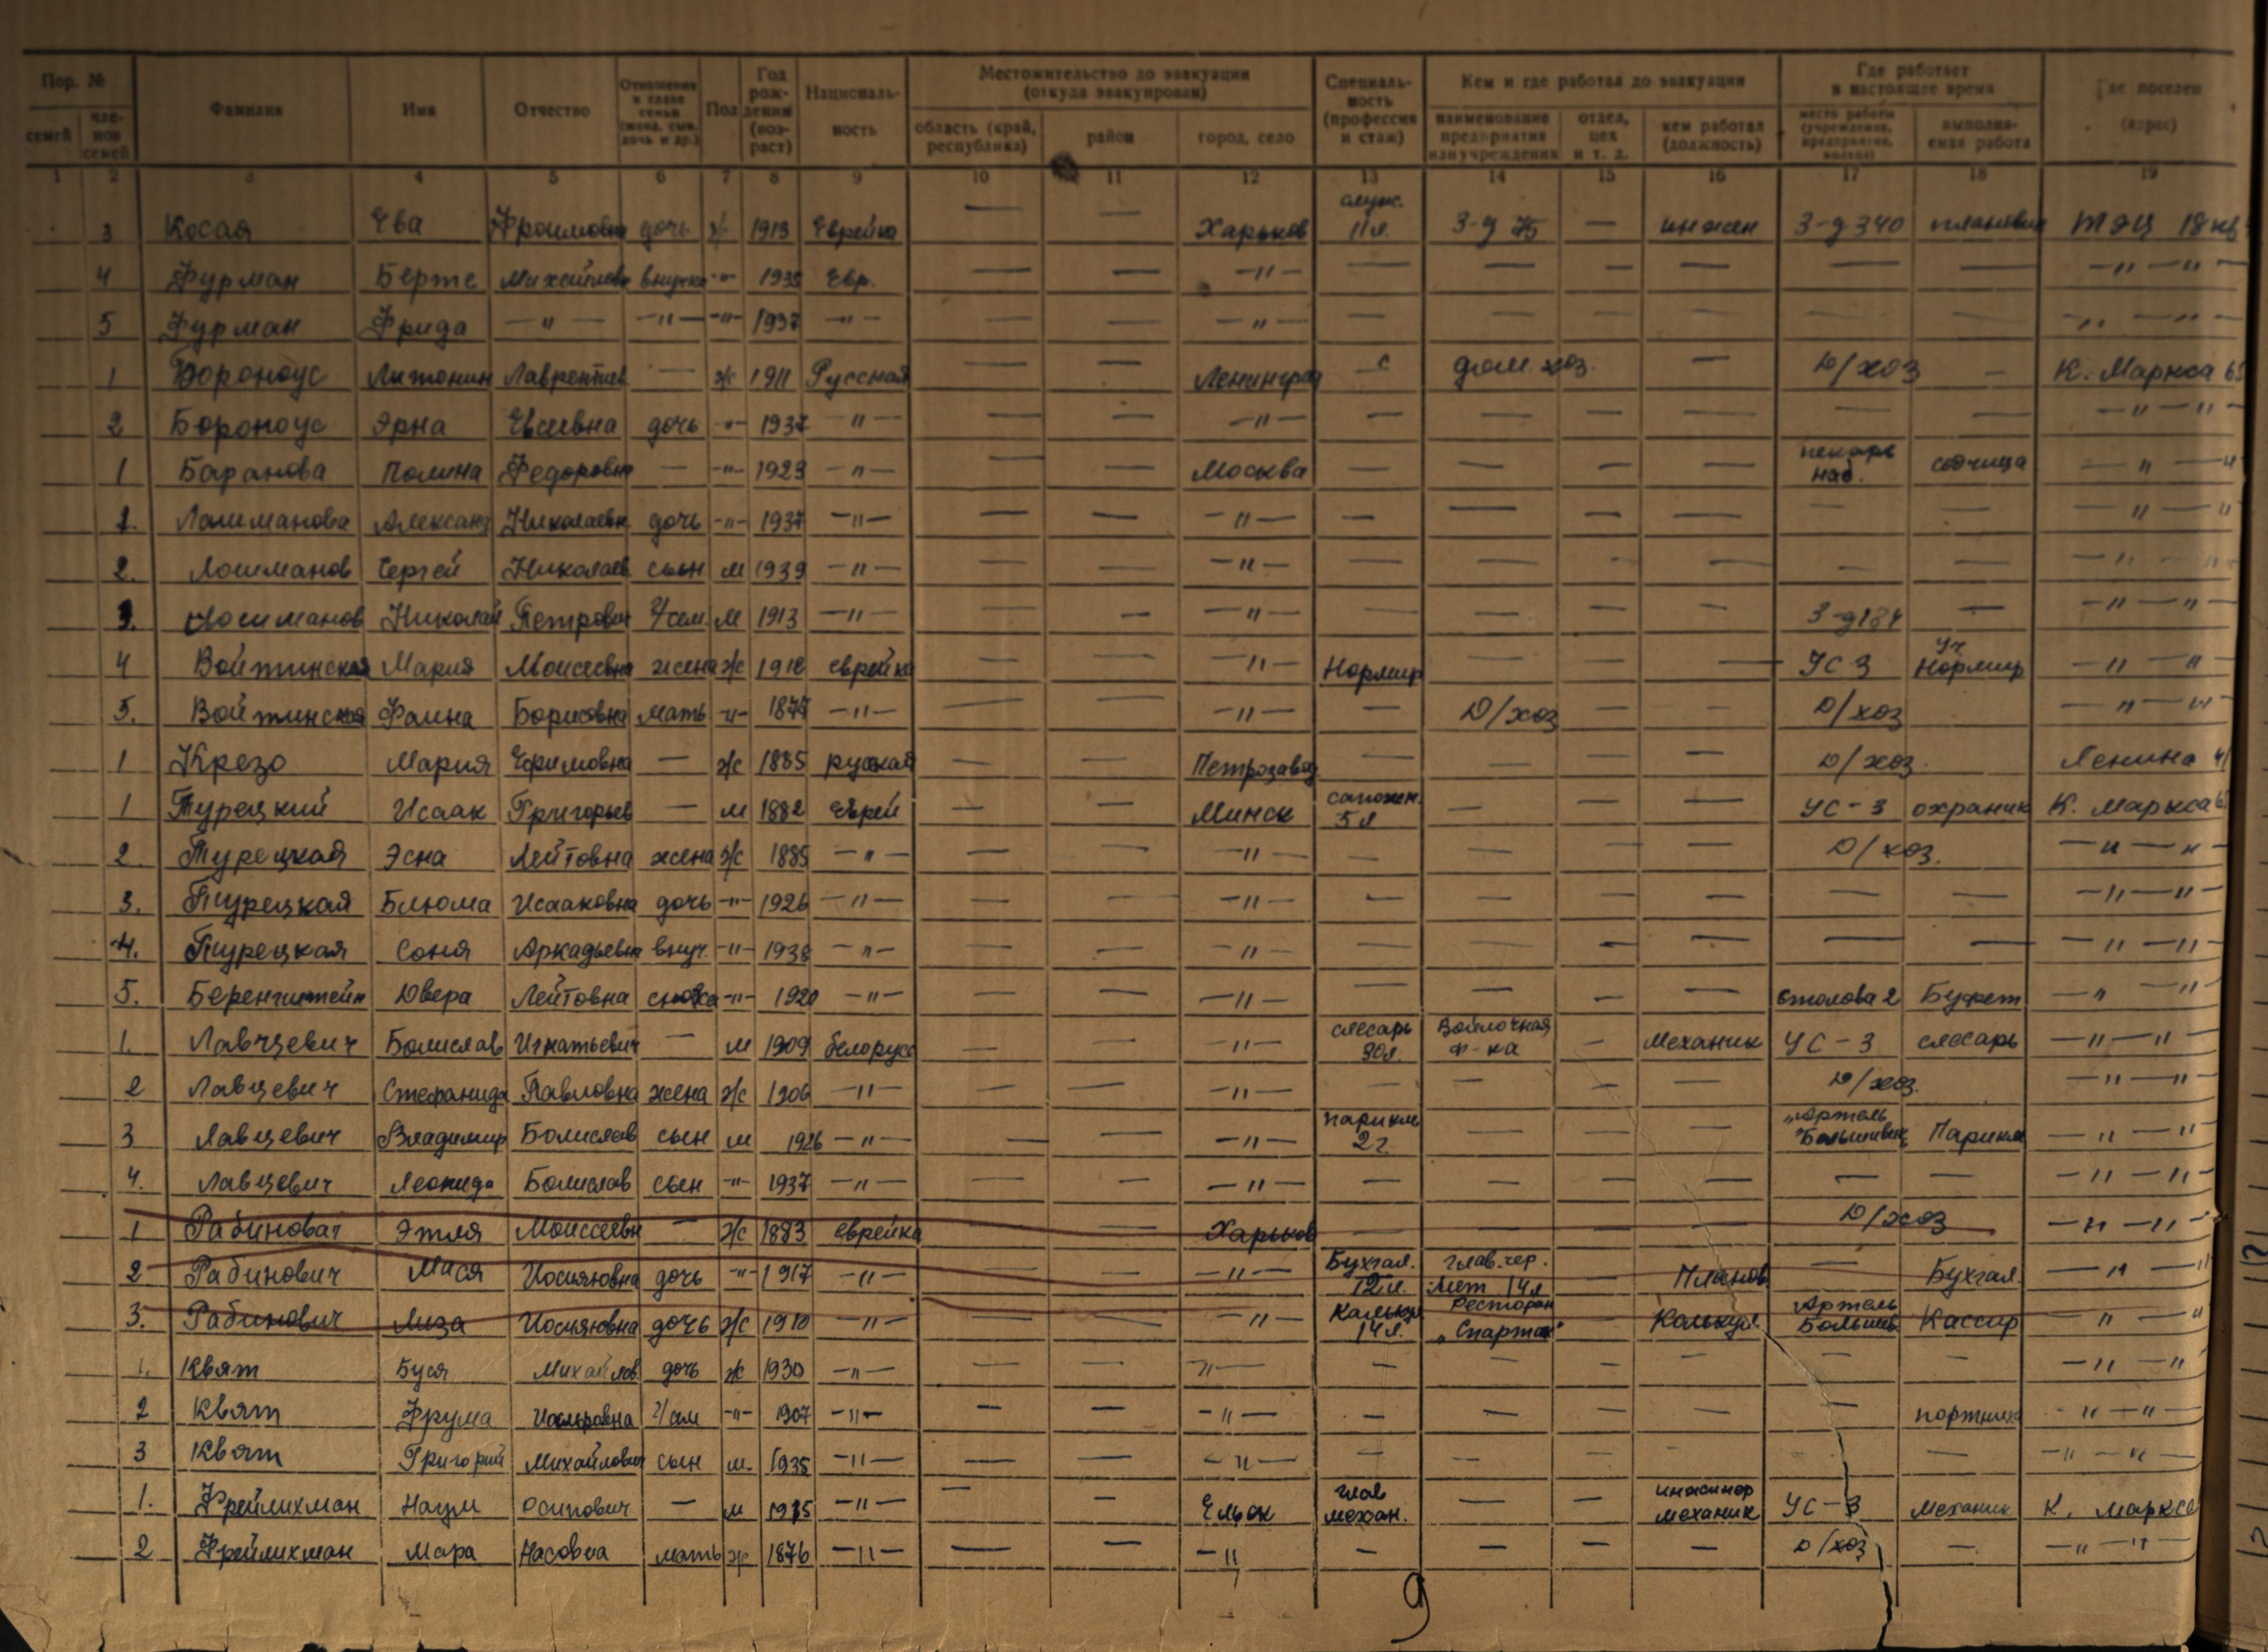 Пор. № Фамилия Имя Отчество Отношение к главе семьи (жена, сын, дочь и др.) Пол Год рождения (возраст) Национальность Местожительство до эвакуации (откуда эвакуирован) Специальность (профессия и стаж) Кем и где работал до эвакуации Где работает в настоящее время Где поселен (адрес)
семей членов семей область (край, республика) район город, село наименование предприятия или учреждения отдел, цех и т. д. кем работал (должность) место работы (учреждение, предприятие, колхоз) выполняемая работа
1 2 3 4 5 6 7 8 9 10 11 12 13 14 15 16 17 18 19
3 Косая Ева Фроимовна дочь ж 1913 Еврейка — — Харьков служ. 11 л. З-д 75 — инжен З-д 340 плановик ТЭЦ 18 кв
4 Фурман Берте Михайловн внучка -"- 1935 Евр. — — -"- — — — — — — -"- -"-
5 Фурман Фрида -"- -"- -"- 1937 -"- — — -"- — — — — — — -"- -"-
1 Бороноус Антонин Лаврентьев — ж 1911 Русская — — Ленинград — дом. хоз. — Д/хоз — К. Маркса 65
2 Бороноус Эрна Евсеевна дочь -"- 1937 -"- — — -"- — — — — — — -"- -"-
1 Баранова Полина Федоровн — -"- 1923 -"- — — Москва — — — — пекарь наб. -"- -"-
1. Лошманова Александ Николаевн дочь -"- 1937 -"- — — -"- — — — — — — -"- -"
2. Лошманов Сергей Николаев сын м 1939 -"- — — -"- — — — — — — -"- -"-
3. Лошманов Николай Петрович г/сем. м 1913 -"- — — -"- — — — — З-д 184 — -"- -"-
4 Войтинская Мария Моисеевна жена ж 1912 еврейка — — -"- Нормир — — — УС 3 уч Нормир -"- -"-
5. Войтинская Фаина Борисовна мать -"- 1877 -"- — — -"- — Д/хоз — — Д/хоз -"- -"-
1 Крезо Мария Ефимовна — ж 1885 русская — — Петрозавод — — — — Д/хоз. Ленина 41
1 Турецкий Исаак Григорьев — м 1882 Еврей — — Минск сапожн. 5 л — — — УС-3 охраник К. Маркса 65
2. Турецкая Эсна Лейтовна жена ж 1885 -"- — — -"- — — — — Д/хоз. -"- -"-
3. Турецкая Блюма Исааковна дочь -"- 1926 -"- — — -"- — — — — — — -"- -"-
4. Турецкая Соня Аркадьевн внуч. -"- 1938 -"- — — -"- — — — — — — -"- -"-
5. Беренгштейн Двера Лейтовна сноха -"- 1920 -"- — — -"- — — — — столова 2 Буфет -"- -"-
1. Лавцевич Болислав Игнатьевич — м 1909 белорус — — -"- слесарь Войлочная ф-ка — Механик УС-3 слесарь -"- -"-
2 Лавцевич Стефанида Павловна жена ж 1906 -"- — — -"- — — — — Д/хоз. -"- -"-
3 Лавцевич Владимир Болислав сын м 1926 -"- — — -"- парикм 2 г. — — — "Артель "Большевик" Парикм -"- -"-
4. Лавцевич Леонид Болислав сын -"- 1937 -"- — — -"- — — — — — — -"- -"-
1 Рабинович Этля Моиссеевн — ж 1883 еврейка — — Харьков — — — — Д/хоз -"- -"-
2 Рабинович Мася Иосиповна дочь -"- 1917 -"- — — -"- Бухгал. 12 л. Глав. чер. Мет 14 л — Планов — Бухгал. -"- -"
3. Рабинович Лиза Иосиповна дочь ж 1910 -"- — — -"- Калькул 14 л. Ресторан "Спартак" — Калькул Артель Большев. Кассир -"- "
1. Квят Буся Михайлов дочь ж 1930 -"- — — -"- — — — — — — -"- -"
2 Квят Фрума г/сем -"- 1907 -"- — — -"- — — — — — портниха -"- -"-
3 Квят Григорий Михайлович сын м. 1935 -"- — — -"- — — — — — -"- -"-
1. Фрейлихман Наум Осипович — м -"- — Ельск глав механ. — — инженер механик УС-3 механик К. Маркса
2 Фрейлихман Мара мать ж 1876 -"- — — -"- — — — — Д/хоз — -"- -"-
9